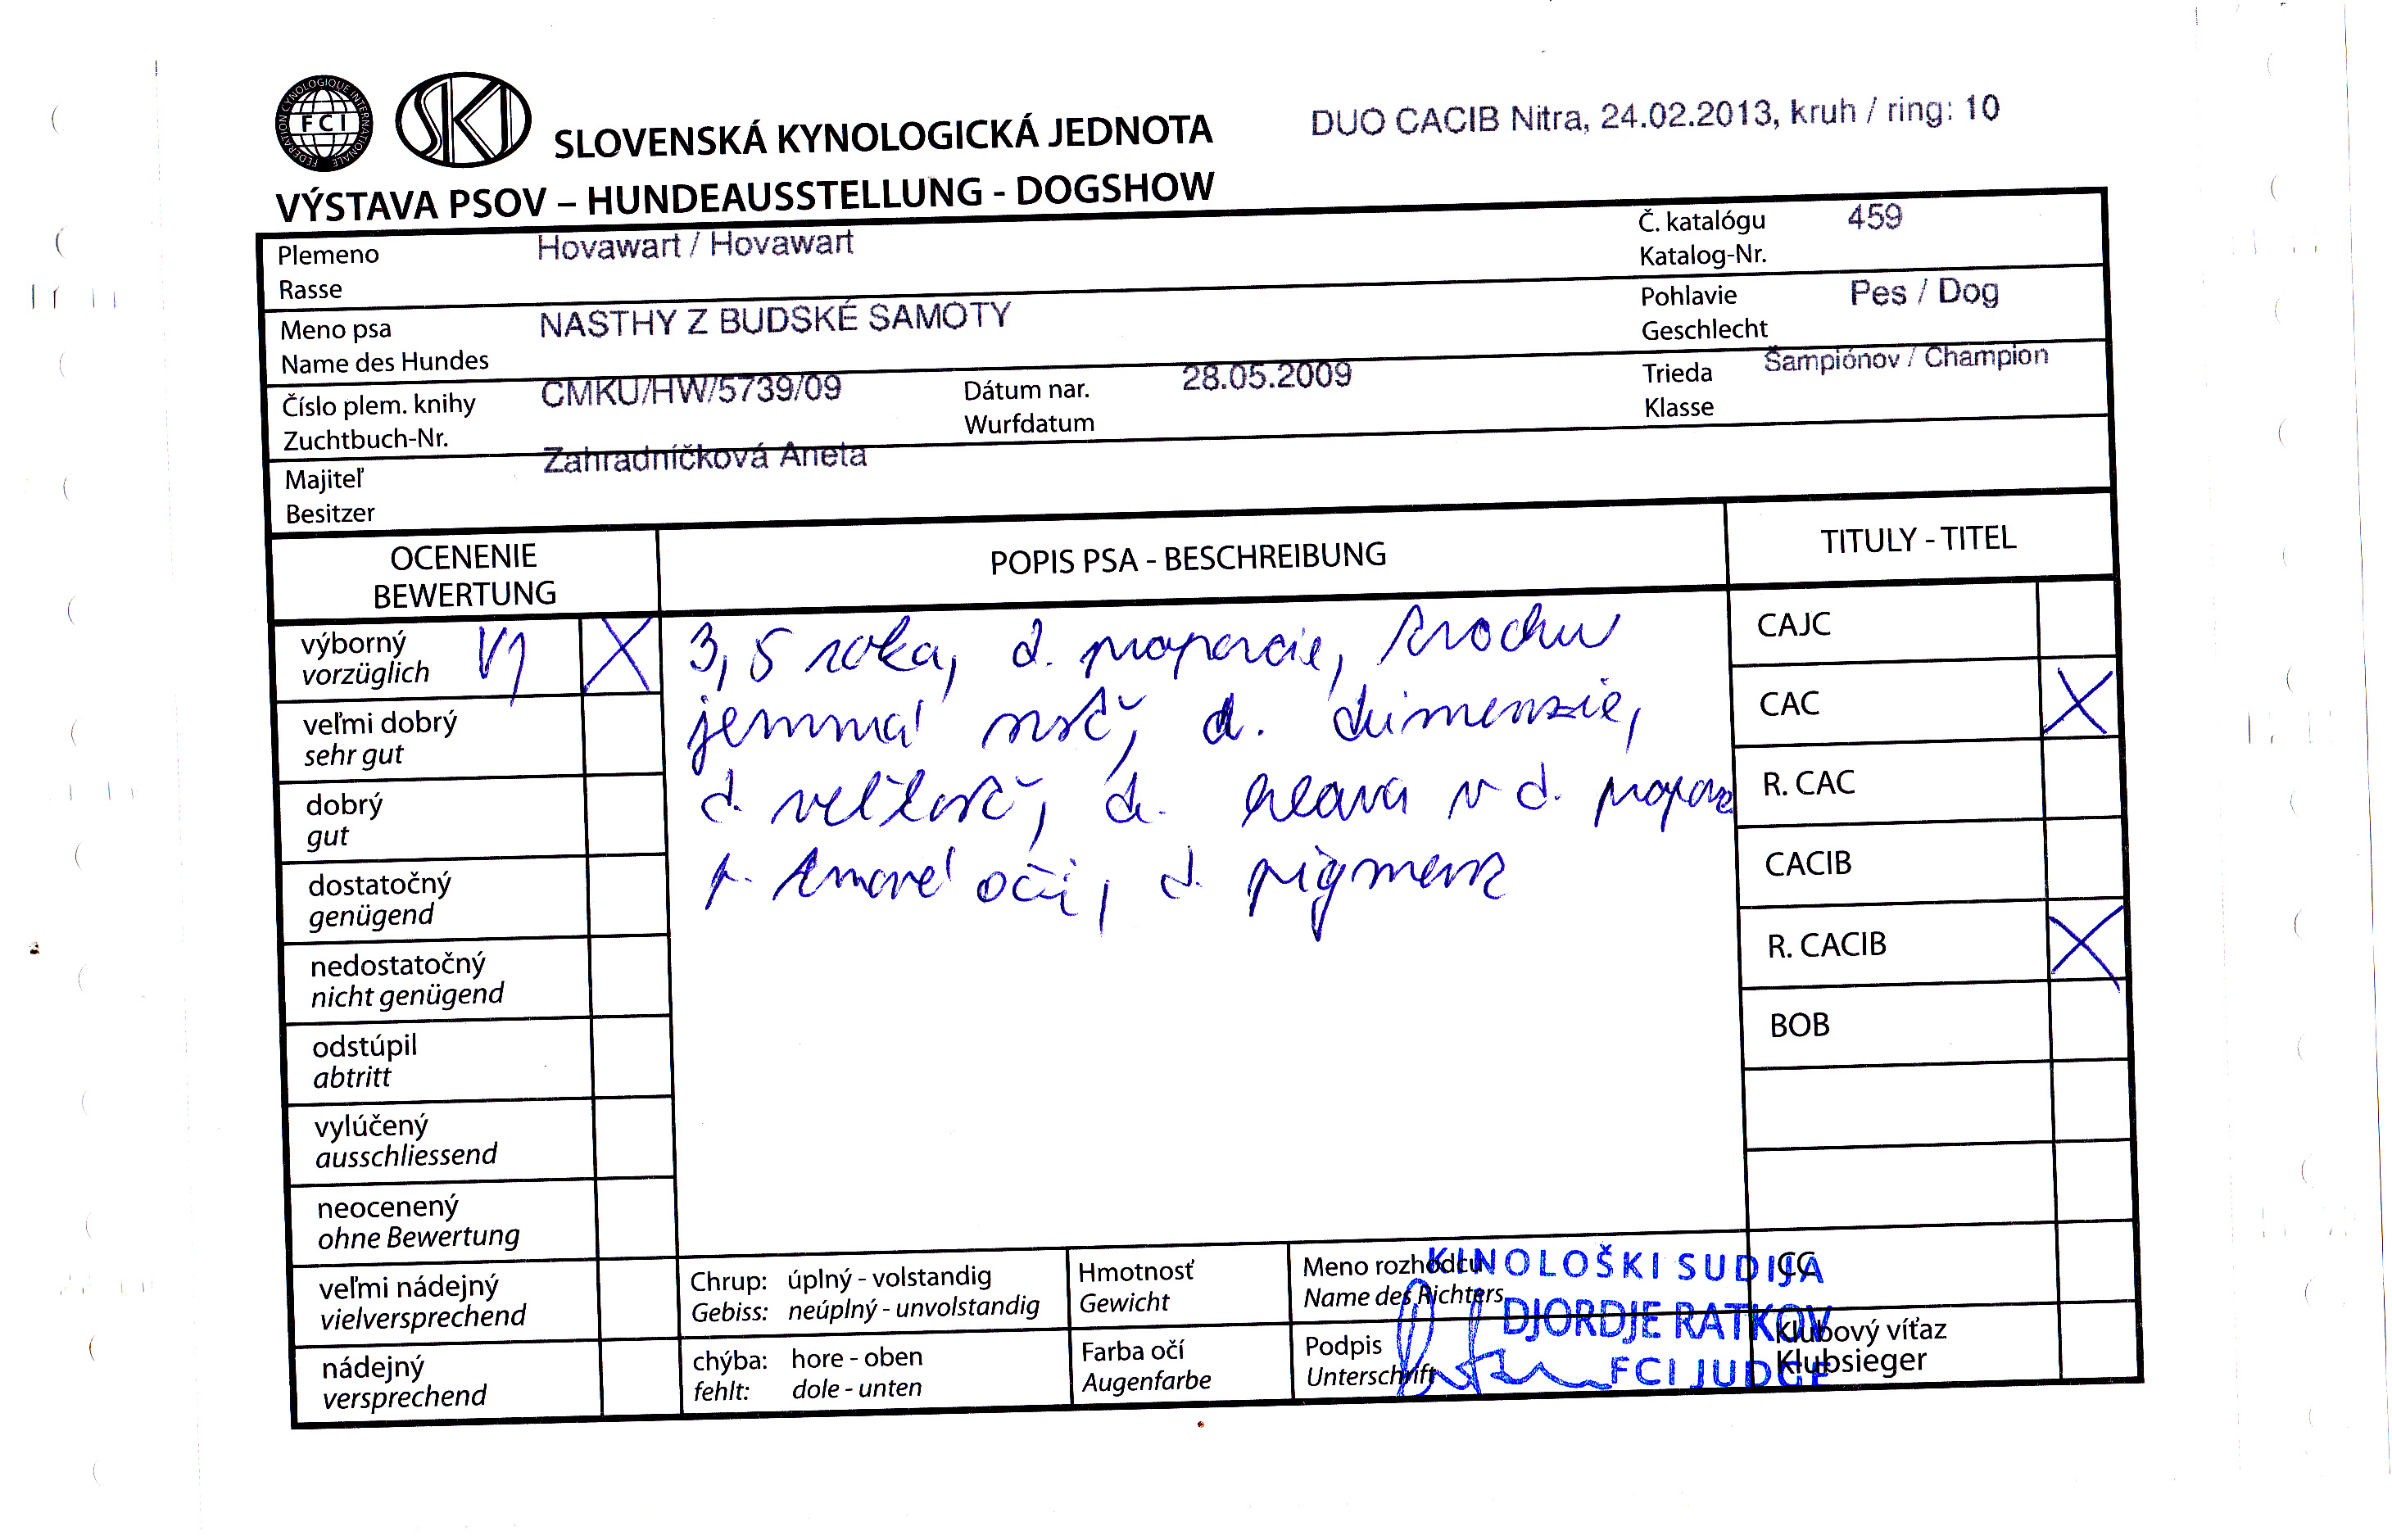 FEDERATION CYNOLOGIQUE INTERNATIONALE
FCI
SKJ
SLOVENSKÁ KYNOLOGICKÁ JEDNOTA
DUO CACIB Nitra, 24.02.2013, kruh / ring: 10
VÝSTAVA PSOV – HUNDEAUSSTELLUNG - DOGSHOW
Plemeno Hovawart / Hovawart Č. katalógu 459
Rasse Katalog-Nr.
Meno psa NASTHY Z BUDSKÉ SAMOTY Pohlavie Pes / Dog
Name des Hundes Geschlecht
Číslo plem. knihy CMKU/HW/5739/09 Dátum nar. 28.05.2009 Trieda Šampiónov / Champion
Zuchtbuch-Nr. Wurfdatum Klasse
Majiteľ Zahradníčková Aneta
Besitzer
OCENENIE
BEWERTUNG
POPIS PSA - BESCHREIBUNG
TITULY - TITEL
výborný V1 X
vorzüglich
veľmi dobrý
sehr gut
dobrý
gut
dostatočný
genügend
nedostatočný
nicht genügend
odstúpil
abtritt
vylúčený
ausschliessend
neocenený
ohne Bewertung
veľmi nádejný
vielversprechend
nádejný
versprechend
3,5 roka, d. proporcie, trochu
jemná srsť, d. dimenzie,
d. veľkosť, d. hlava v d. propor
t. tmavé oči, d. pigment
CAJC
CAC X
R. CAC
CACIB
R. CACIB X
BOB
CC
Klubový víťaz
Klubsieger
Chrup: úplný - volstandig
Gebiss: neúplný - unvolstandig
chýba: hore - oben
fehlt: dole - unten
Hmotnosť
Gewicht
Farba očí
Augenfarbe
Meno rozhodcu
Name des Richters
Podpis
Unterschrift
KINOLOŠKI SUDIJA
DJORDJE RATKOV
FCI JUDGE